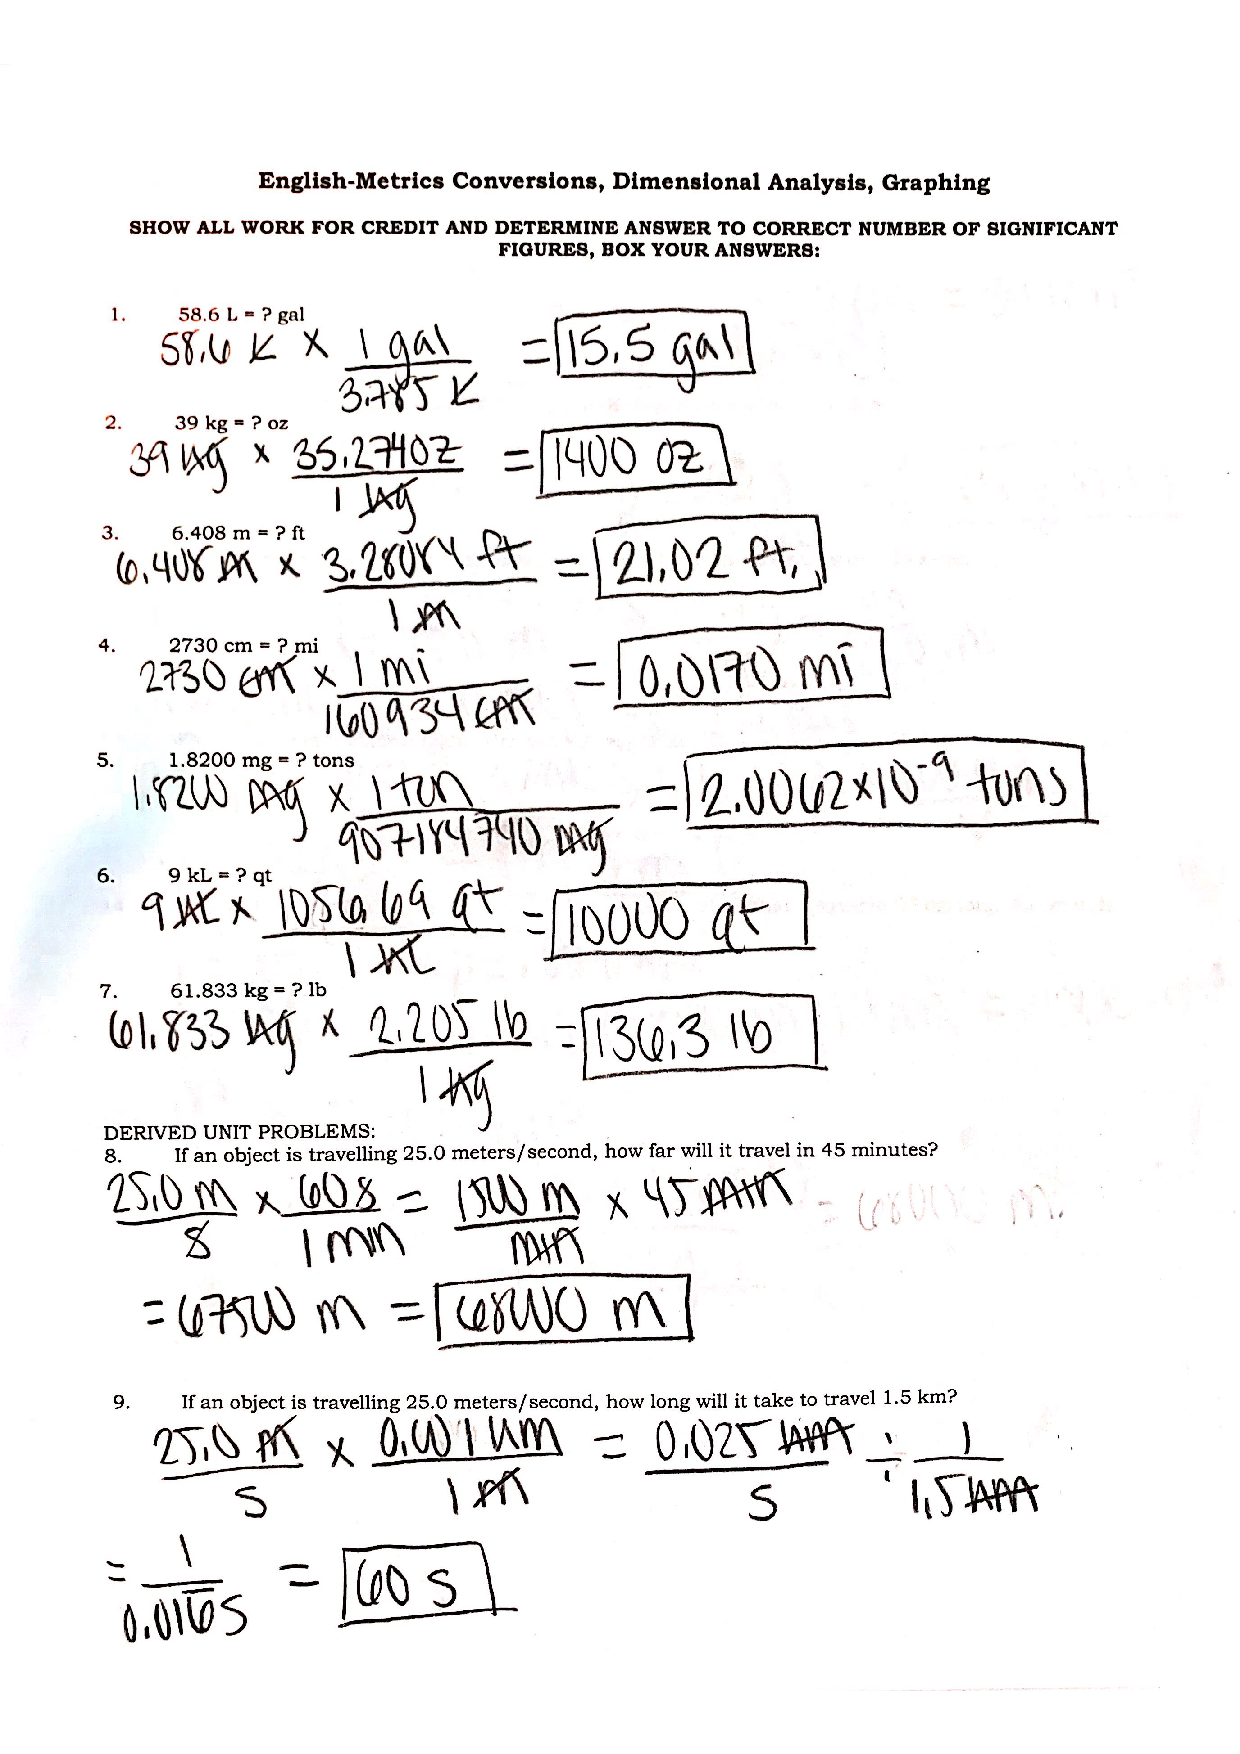 English-Metrics Conversions, Dimensional Analysis, Graphing
SHOW ALL WORK FOR CREDIT AND DETERMINE ANSWER TO CORRECT NUMBER OF SIGNIFICANT
FIGURES, BOX YOUR ANSWERS:
1. 58.6 L = ? gal
58.6 L × 1 gal = 15.5 gal
3.785 L
2. 39 kg = ? oz
39 kg × 35.274 oz = 1400 oz
1 kg
3. 6.408 m = ? ft
6.408 m × 3.28084 ft = 21.02 ft.
1 m
4. 2730 cm = ? mi
2730 cm × 1 mi = 0.0170 mi
160934 cm
5. 1.8200 mg = ? tons
1.8200 mg × 1 ton = 2.0062×10⁻⁹ tons
907184740 mg
6. 9 kL = ? qt
9 kL × 1056.69 qt = 10000 qt
1 kL
7. 61.833 kg = ? lb
61.833 kg × 2.205 lb = 136.3 lb
1 kg
DERIVED UNIT PROBLEMS:
8. If an object is travelling 25.0 meters/second, how far will it travel in 45 minutes?
25.0 m × 60 s = 1500 m × 45 min = 68000 m.
s 1 min min
= 67500 m = 68000 m
9. If an object is travelling 25.0 meters/second, how long will it take to travel 1.5 km?
25.0 m × 0.001 km = 0.025 km ÷ 1
s 1 m s 1.5 km
= 1 = 60 s
0.016̅ s